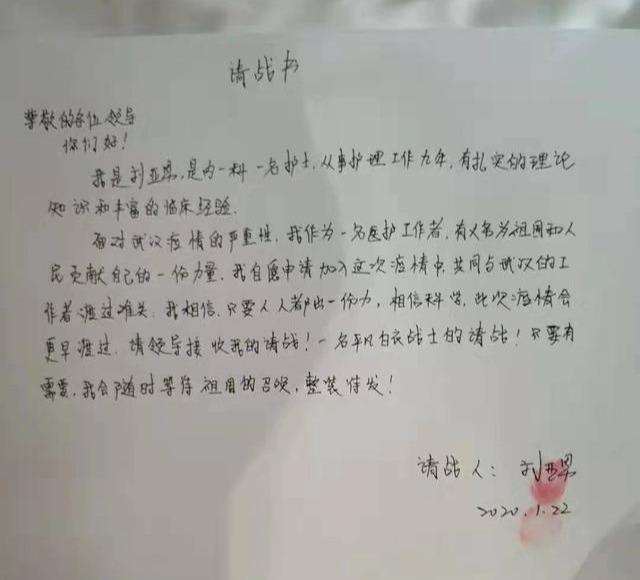 请战书
尊敬的各位领导
你们好!
我是刘亚男,是内一科一名护士,从事护理工作九年,有扎实的理论
知识和丰富的临床经验.
面对武汉疫情的严重性,我作为一名医护工作者,有义务为祖国和人
民贡献自己的一份力量,我自愿申请加入这次疫情中,共同与武汉的工
作者渡过难关,我相信,只要人人都出一份力,相信科学,此次疫情会
更早渡过.请领导接收我的请战!一名平凡白衣战士的请战!只要有
需要,我会随时等待祖国的召唤,整装待发!
请战人:刘亚男
2020.1.22